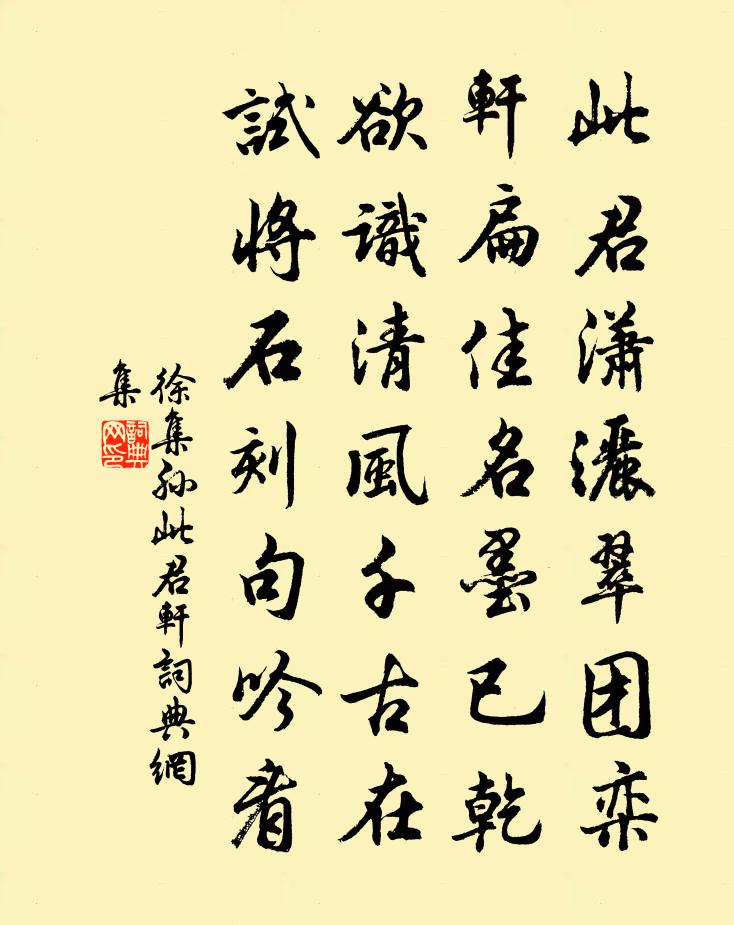 此君瀟灑翠团栾
軒扁佳名墨已乾
欲識清風千古在
試將石刻句吟看
徐集孙此君軒詞典網
集
詞典网印